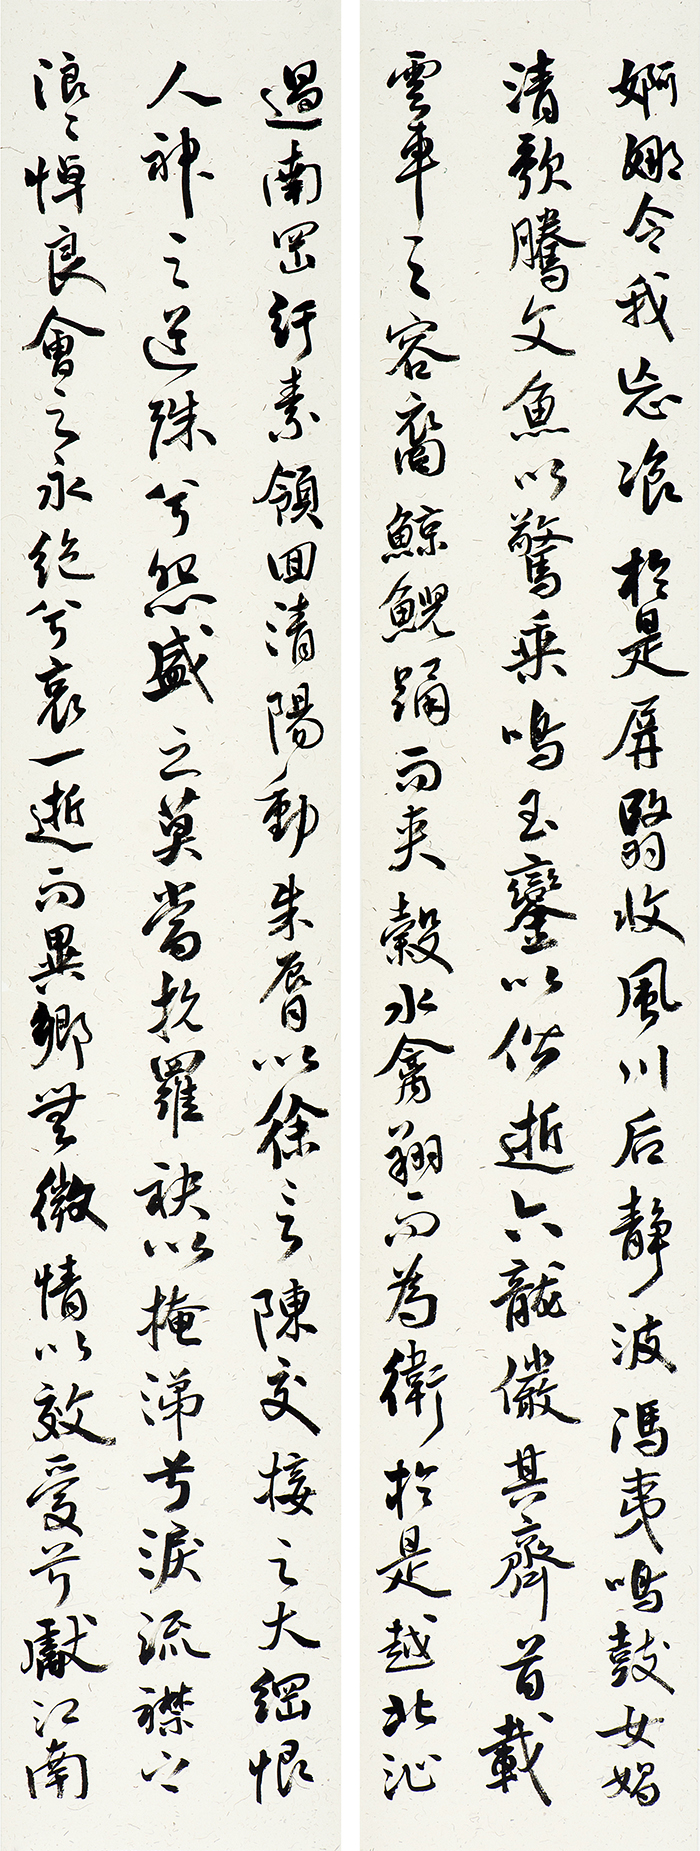 婀娜令我忘飡於是屏翳收風川后静波馮夷鳴鼓女媧
清歌騰文魚以驚乘鳴玉鑾以偕逝六龍儼其齊首載
雲車之容裔鯨鯢踊而夾轂水禽翔而為衛於是越北沚
過南岡紆素領回清陽動朱脣以徐言陳交接之大綱恨
人神之道殊兮怨盛之莫當抗羅袂以掩涕兮淚流襟之
浪〻悼良會之永絶兮哀一逝而異鄉無微情以效愛兮獻江南